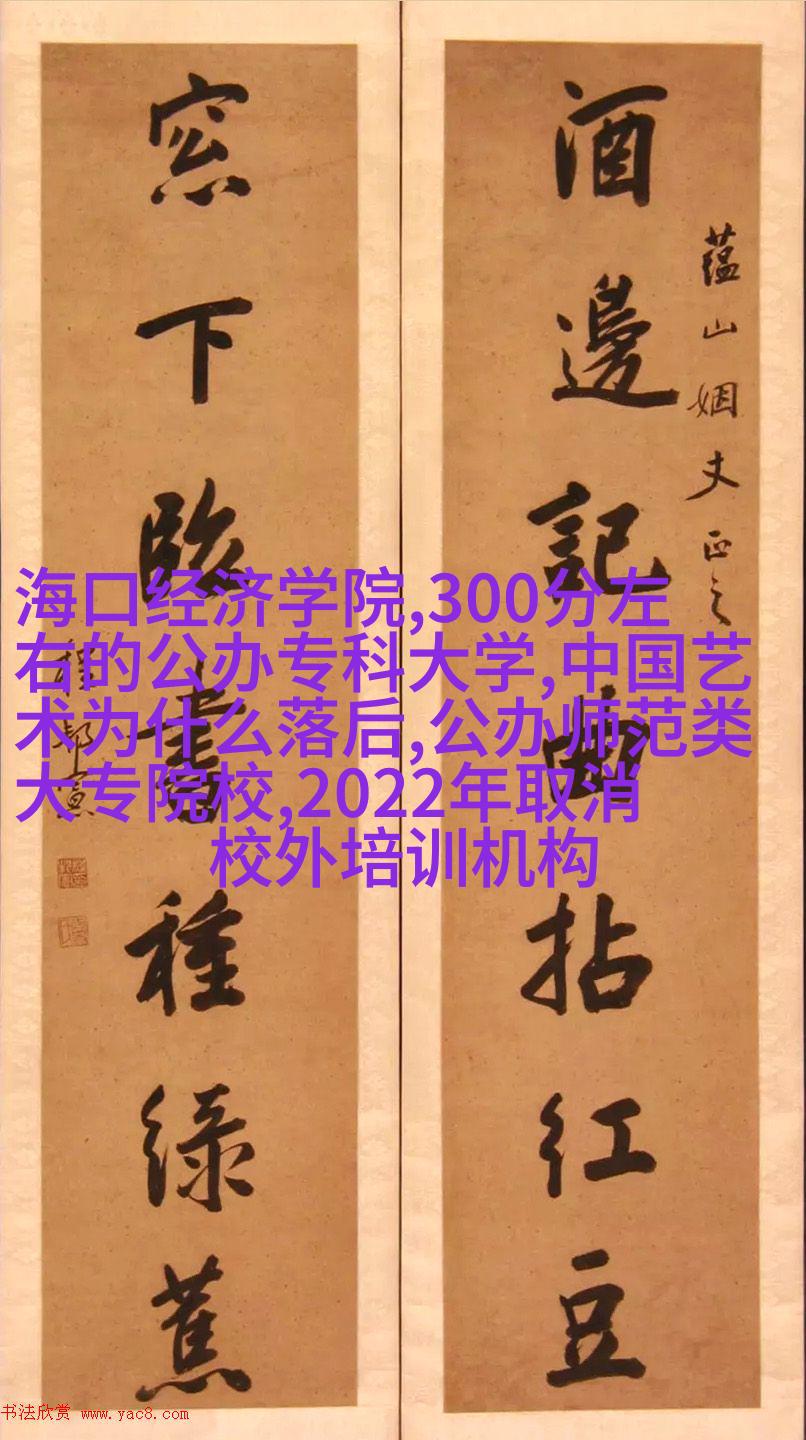 酒邊記曲拈紅豆
蕴山姻丈正之
窓下臨書種綠蕉
程邦憲
海口经济学院,300分左
右的公办专科大学,中国艺
术为什么落后,公办师范类
大专院校,2022年取消
校外培训机构
书法欣赏 www.yac8.com